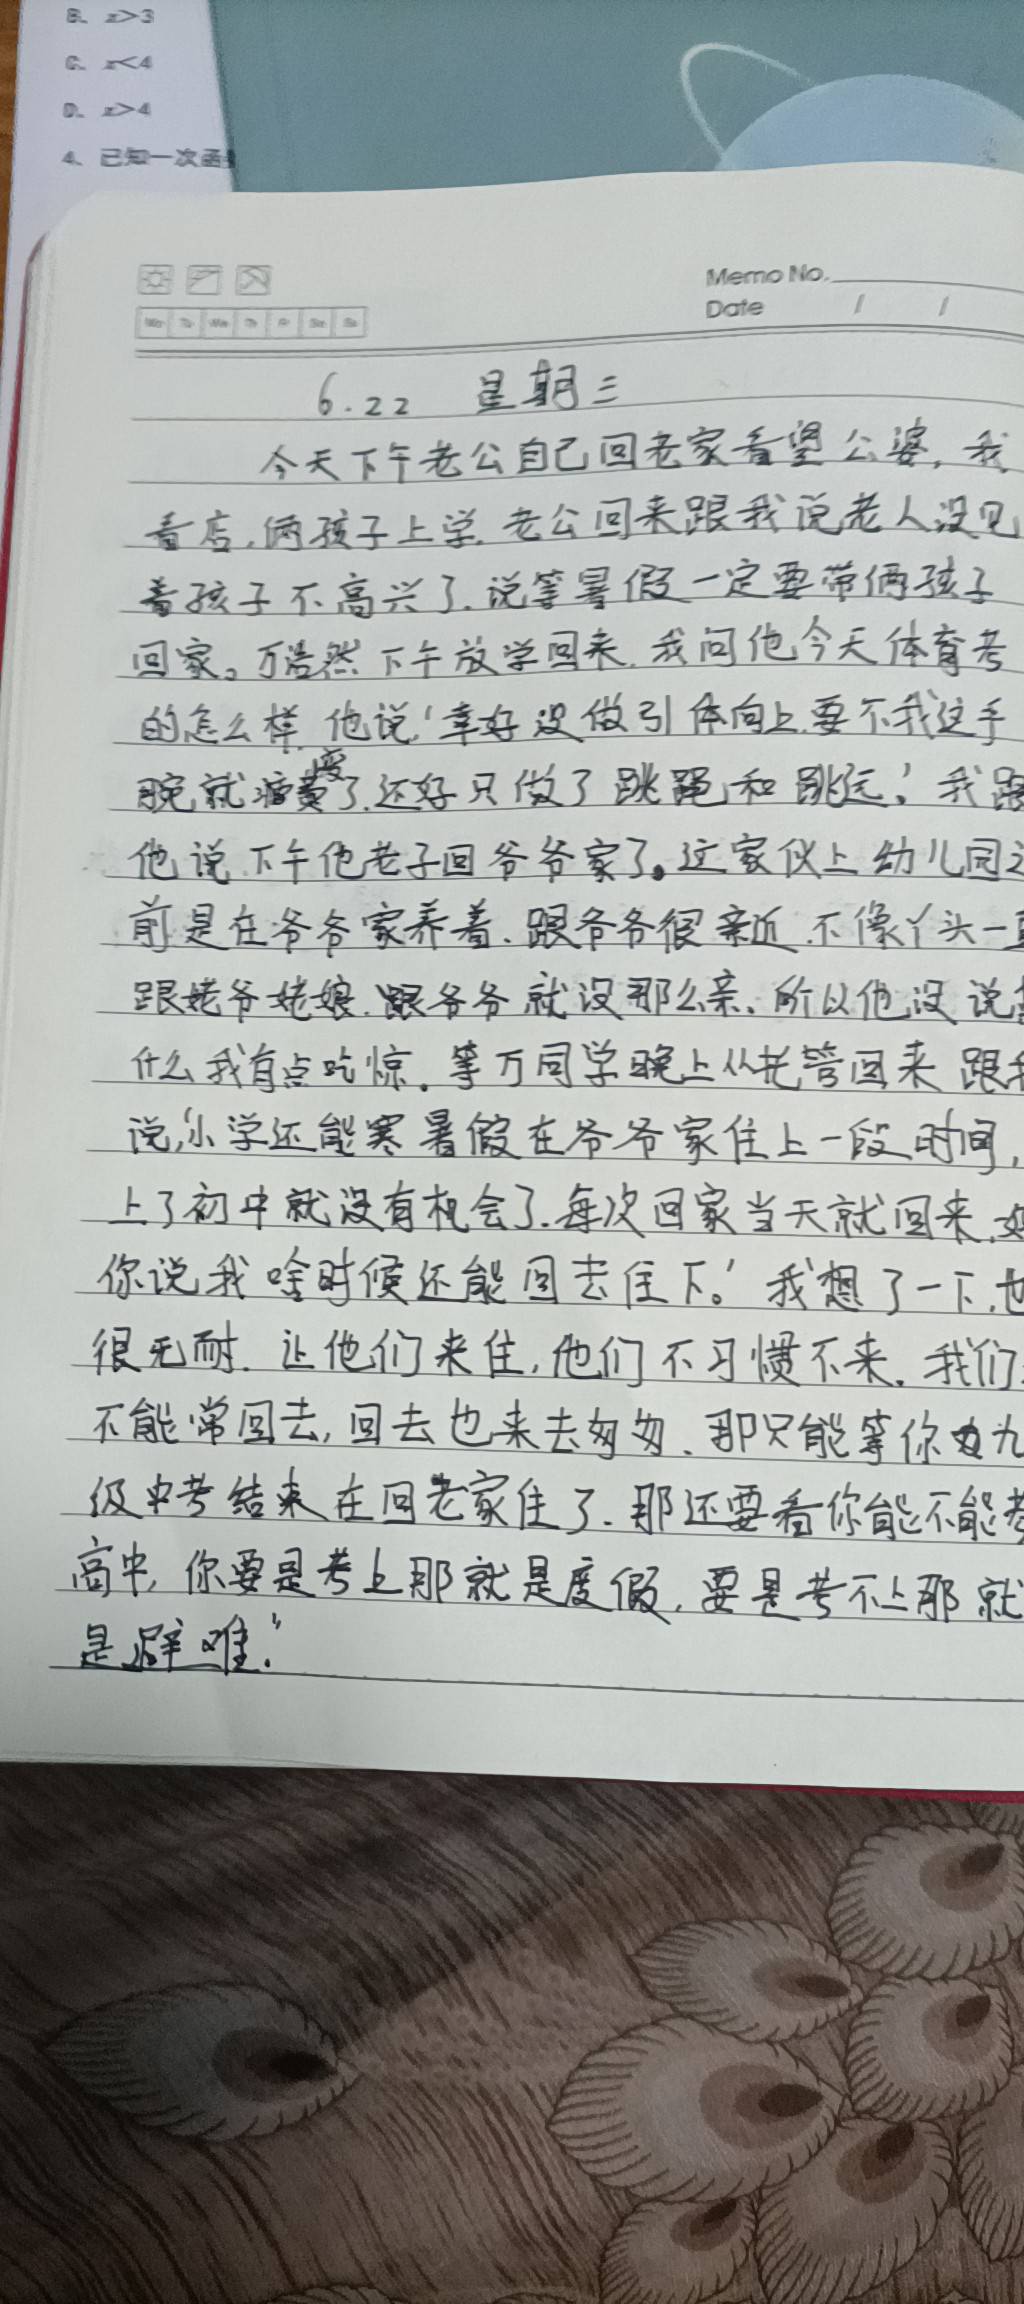 B、x>3
C、x<4
D、x>4
4、已知一次函
Memo No.
Date / /
Mo Tu We Th Fr Sa Su
6.22 星期三
今天下午老公自己回老家看望公婆,我
看店,俩孩子上学.老公回来跟我说老人没见
着孩子不高兴了.说等暑假一定要带俩孩子
回家。万浩然下午放学回来.我问他今天体育考
的怎么样,他说'幸好没做引体向上,要不我这手
腕就废了.还好只做了跳绳和跳远.'我跟
他说下午他老子回爷爷家了。这家伙上幼儿园之
前是在爷爷家养着.跟爷爷很亲近.不像丫头一直
跟姥爷姥娘.跟爷爷就没那么亲.所以他没说
什么我有点吃惊。等万同学晚上从托管回来跟我
说,'小学还能寒暑假在爷爷家住上一段时间,
上了初中就没有机会了.每次回家当天就回来.妈
你说我啥时候还能回去住下。'我想了一下,也
很无耐.让他们来住,他们不习惯不来.我们
不能常回去,回去也来去匆匆.那只能等你九
级中考结束在回老家住了.那还要看你能不能考
高中,你要是考上那就是度假,要是考不上那就
是避难.'